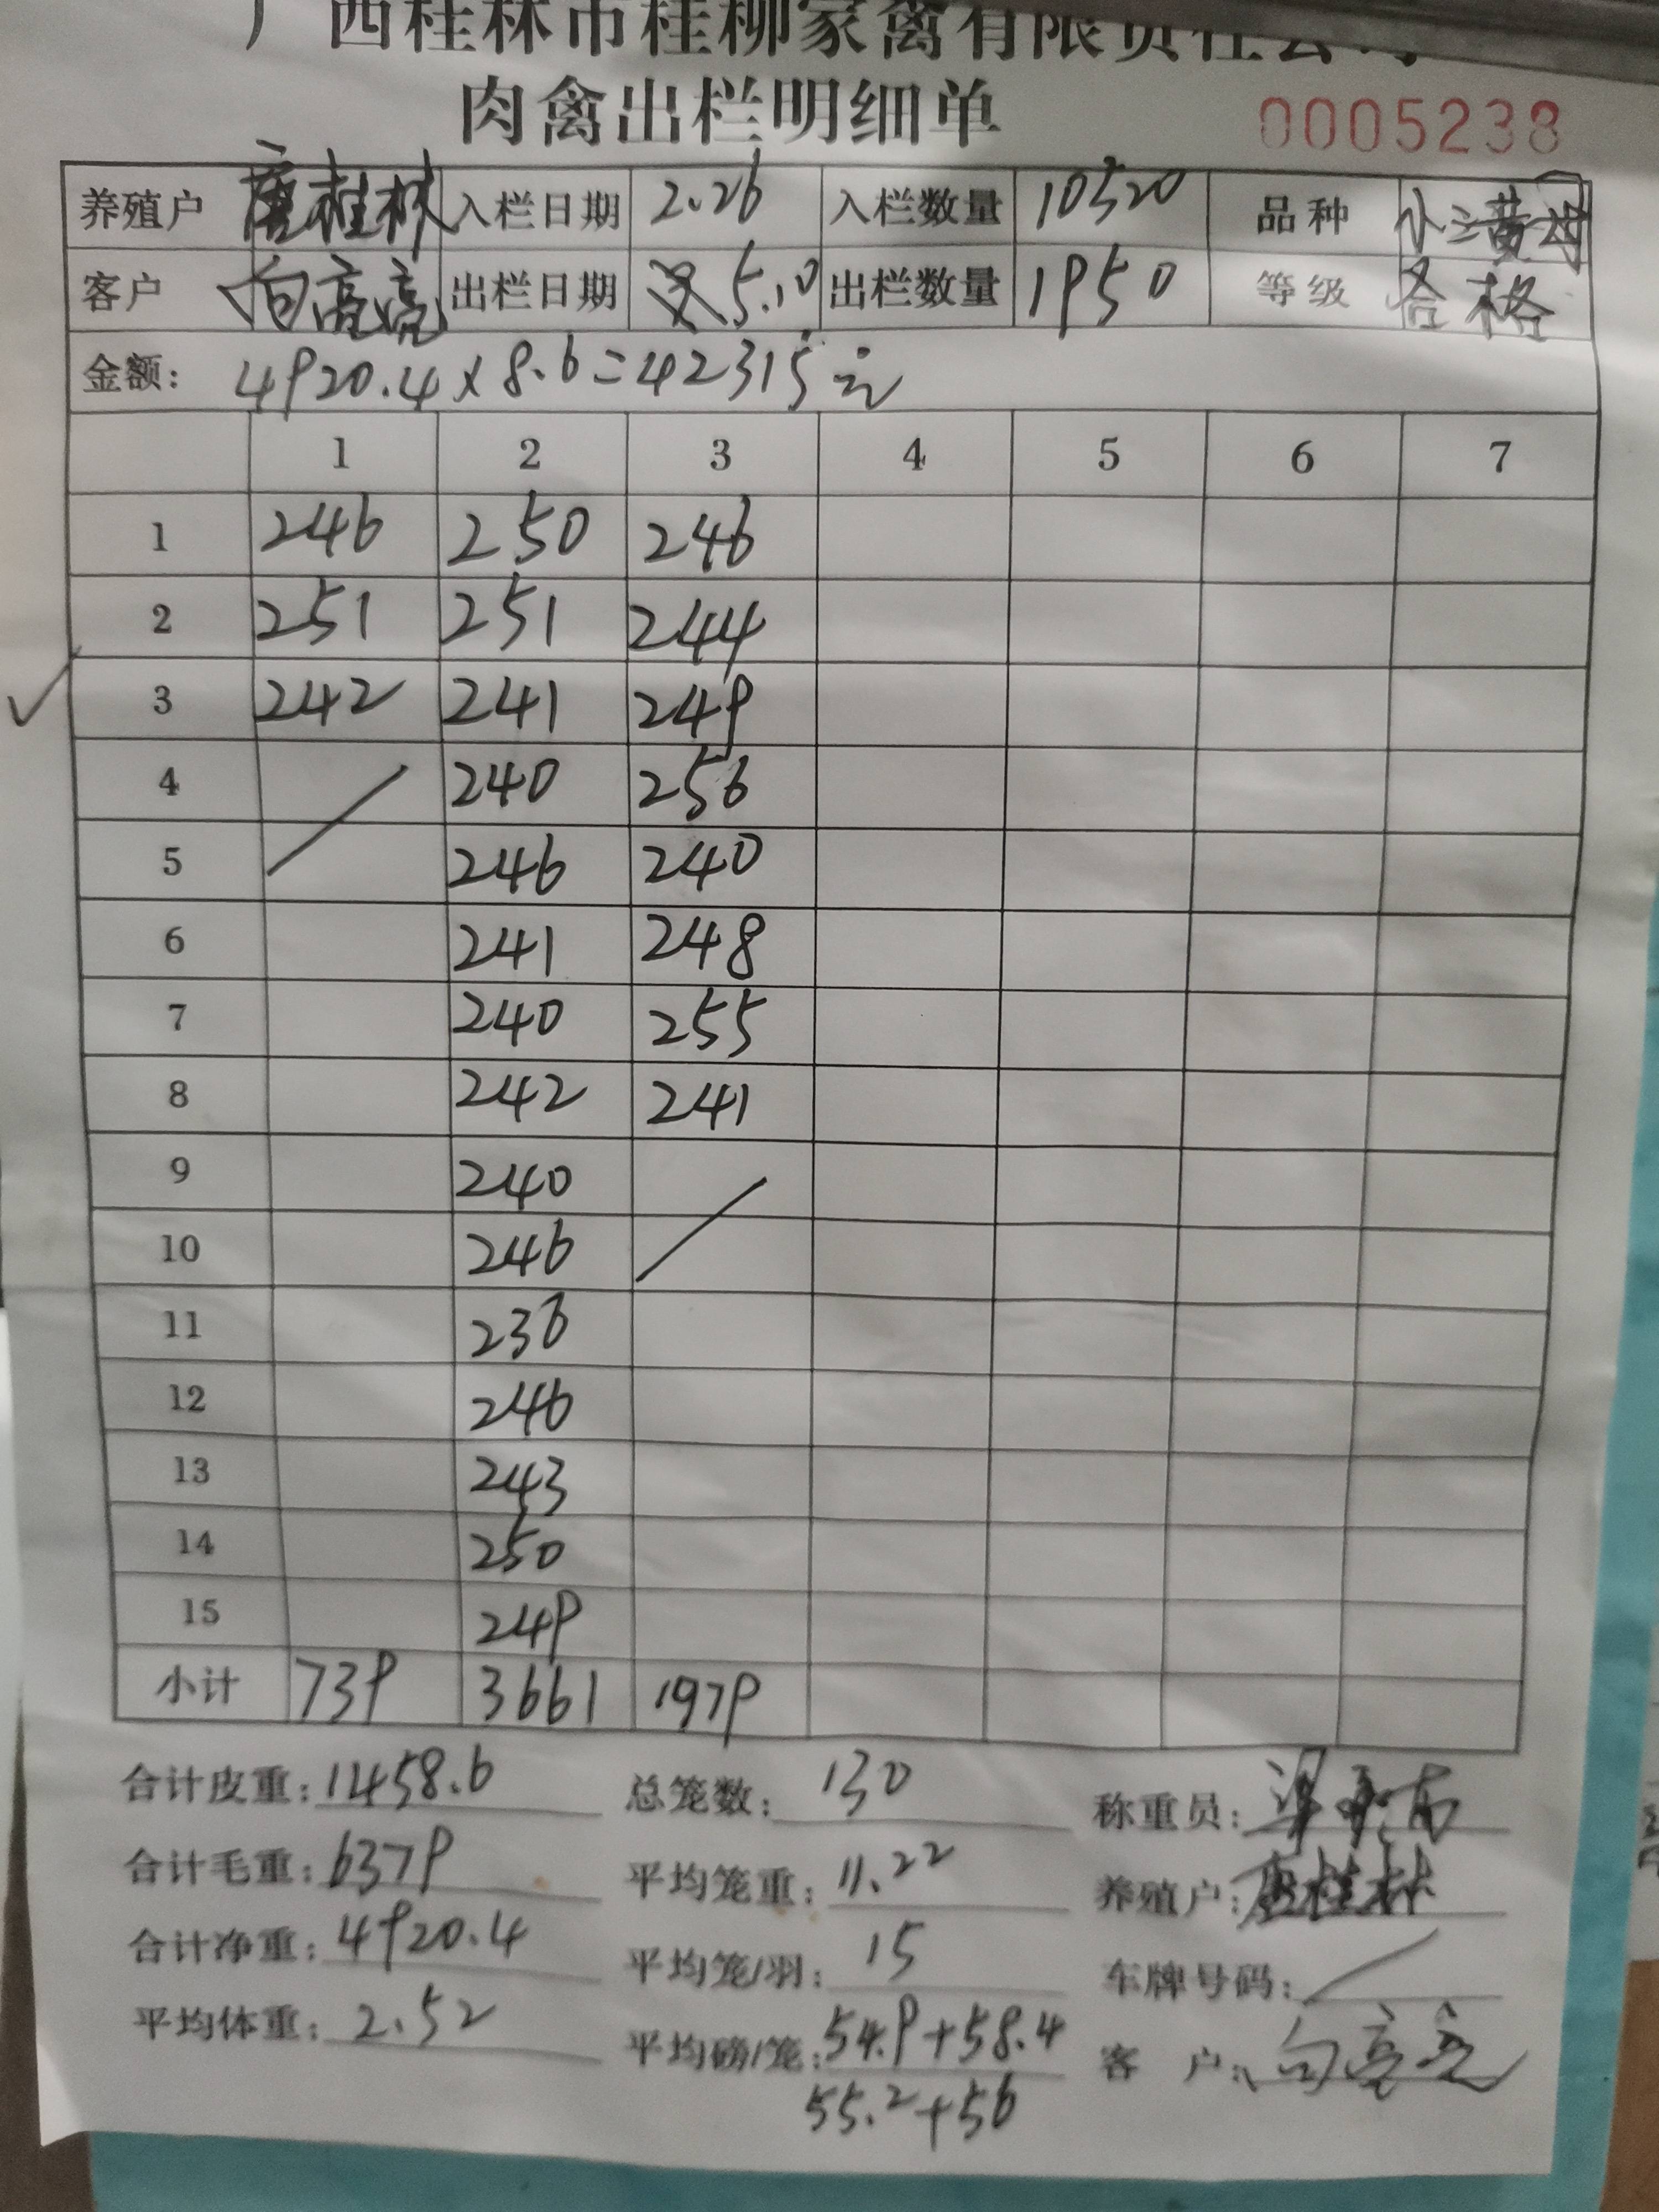 广西桂林市桂柳家禽有限责任公司
肉禽出栏明细单 0005238
养殖户 唐桂林 入栏日期 2.26 入栏数量 10520 品种 小三黄母
客户 向亮亮 出栏日期 5.10 出栏数量 1950 等级 合格
金额: 4920.4×8.6=42315元
1 2 3 4 5 6 7
1 246 250 246
2 251 251 244
3 242 241 249
4 240 256
5 246 240
6 241 248
7 240 255
8 242 241
9 240
10 246
11 236
12 246
13 243
14 250
15 249
小计 739 3661 1979
合计皮重: 1458.6 总笼数: 130 称重员:
合计毛重: 6379 平均笼重: 11.22 养殖户: 唐桂林
合计净重: 4920.4 平均笼/羽: 15 车牌号码: /
平均体重: 2.52 平均磅/笼: 54.9+58.4 客户: 向亮亮
55.2+56